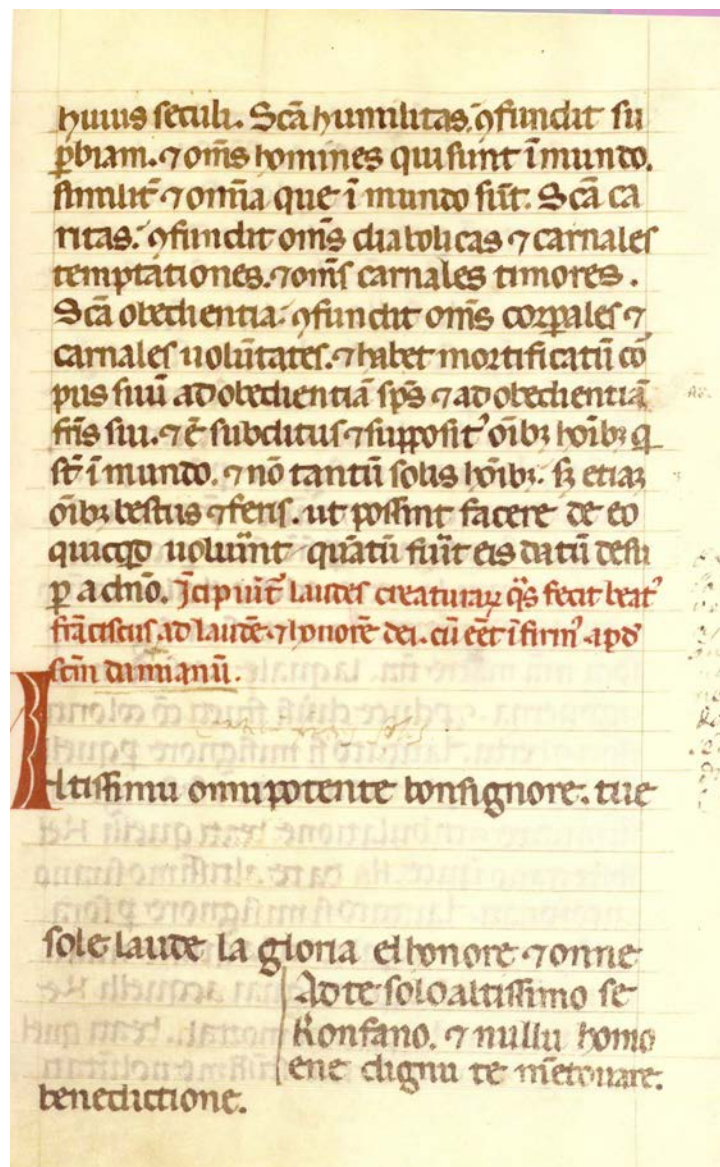 huius seculi. Scā humilitas. ꝯfundit su
ꝑbiam. ⁊ om̄s homines qui sunt ī mundo.
similit̄ ⁊ om̄ia que ī mundo sūt. Scā ca
ritas. ꝯfundit om̄s diabolicas ⁊ carnales
temptationes. ⁊ om̄s carnales timores.
Scā obedientia. ꝯfundit om̄s corꝑales ⁊
carnales uolūtates. ⁊ habet mortificatū cor
pus suū ad obedientiā sp̄s ⁊ ad obedientiā
fr̄is sui. ⁊ ē subditus ⁊ supposit᾽ oībꝫ hoībꝫ q̄
st̄ ī mundo. ⁊ nō tantū solis hoībꝫ. sꝫ etiaꝫ
oībꝫ bestiis ⁊ feris. ut possint facere de eo
quicqd uolūint quātū fūit eis datū desu
ꝑ a dn̄o. Īcipiūt laudes creaturaꝝ q̄s fecit beat᾽
frāciscus ad laudē ⁊ honorē dei. cū eēt īfirm᾽ apd
scm̄ damianū.
Altissimu omnipotente bonsignore. tue
sole laude la gloria elhonore ⁊ onne
Ad te solo altissimo se
Konfano. ⁊ nullu homo
ene dignu te m̄touare.
benedictione.